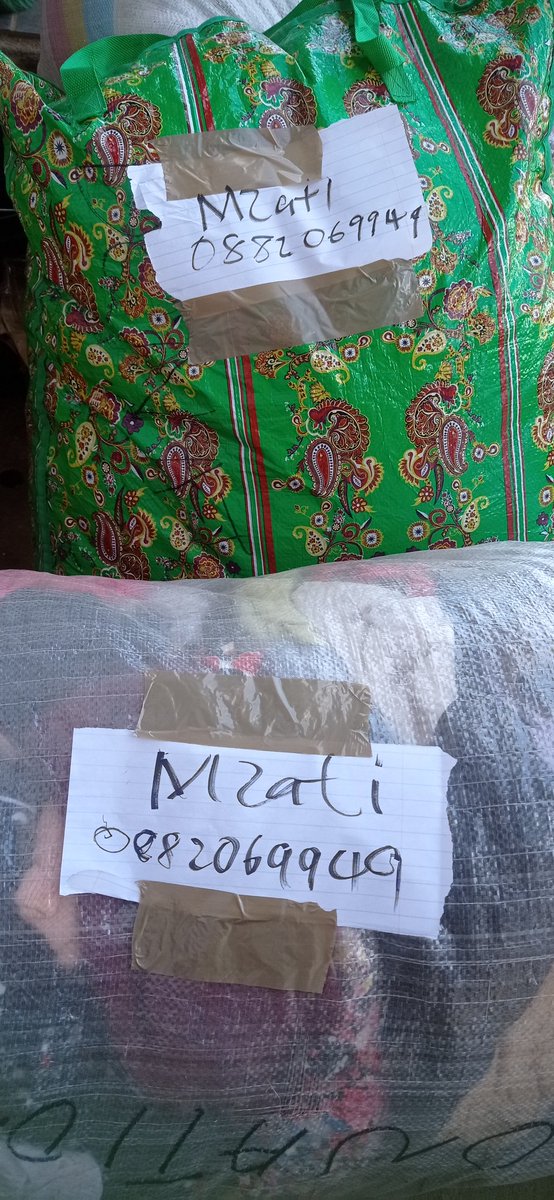 Mzati
0882069949
Mzati
0882069949